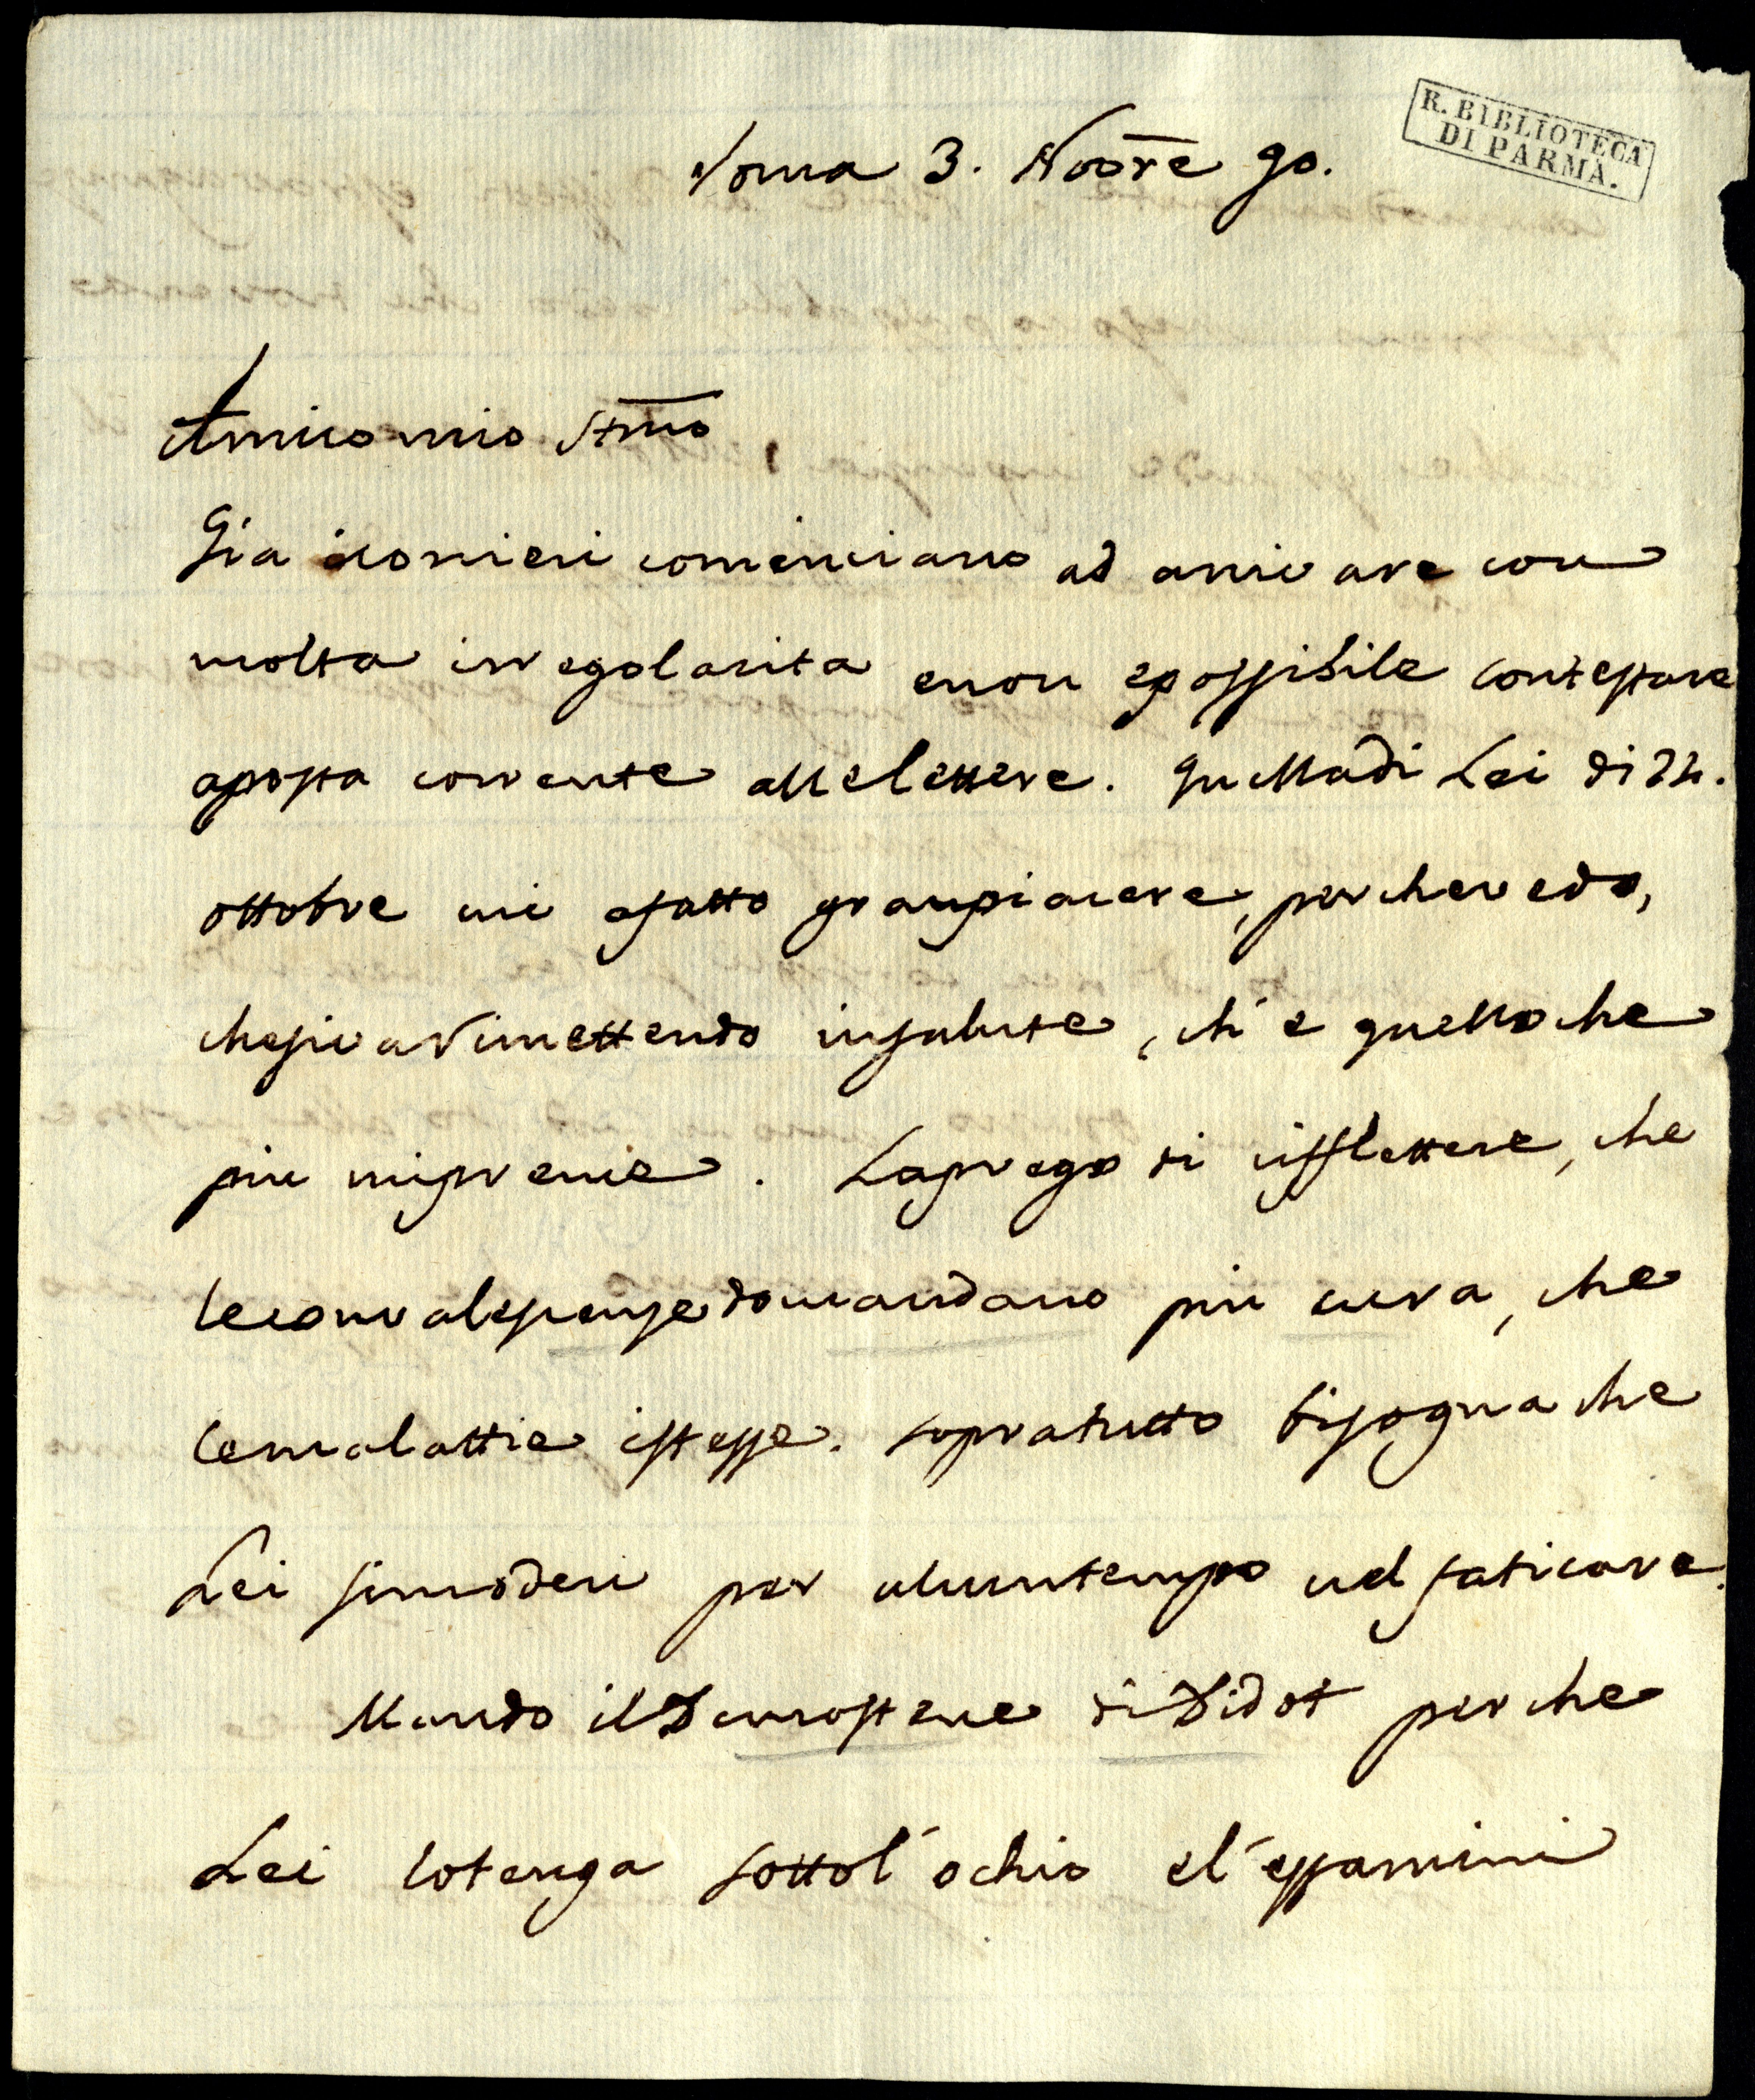 Roma 3. Nobre 90.
R. BIBLIOTECA
DI PARMA.
Amico mio Stmo
Gia icorrieri cominciano ad arrivare con
molta irregolarita enon epossibile contestare
aposta corrente allelettere. Quelladi Lei di 22.
ottobre mi afatto granpiacere, perchevedo,
chesivarimettendo insalute, ch'e quelloche
piu mipreme. Laprego di rifflettere, che
leconvalesense domandano piu cura, che
lemalattie istesse. sopratutto bisogna che
Lei simoderi per alcuntempo nel faticare.
Mando ilDemostene diDidot perche
Lei lotenga sottol'ochio el'essamini